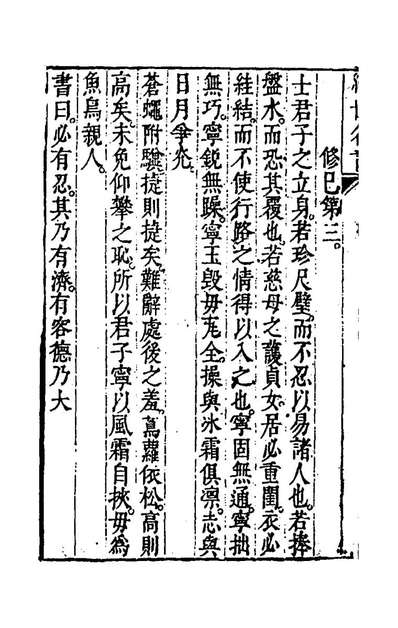 修己第三。
士君子之立身。若珍尺璧。而不忍以易諸人也。若捧
盤水。而恐其覆也。若慈母之護貞女。居必重閨。衣必
絓結。而不使行路之情得以入之也。寧固無通。寧拙
無巧。寧銳無躁。寧玉毀毋瓦全。操與冰霜俱凛。志與
日月爭光。
蒼蠅附驥。捷則捷矣。難辭處後之羞。蔦蘿依松。高則
高矣。未免仰攀之恥。所以君子寧以風霜自挾。毋為
魚鳥親人。
書曰。必有忍。其乃有濟。有容德乃大